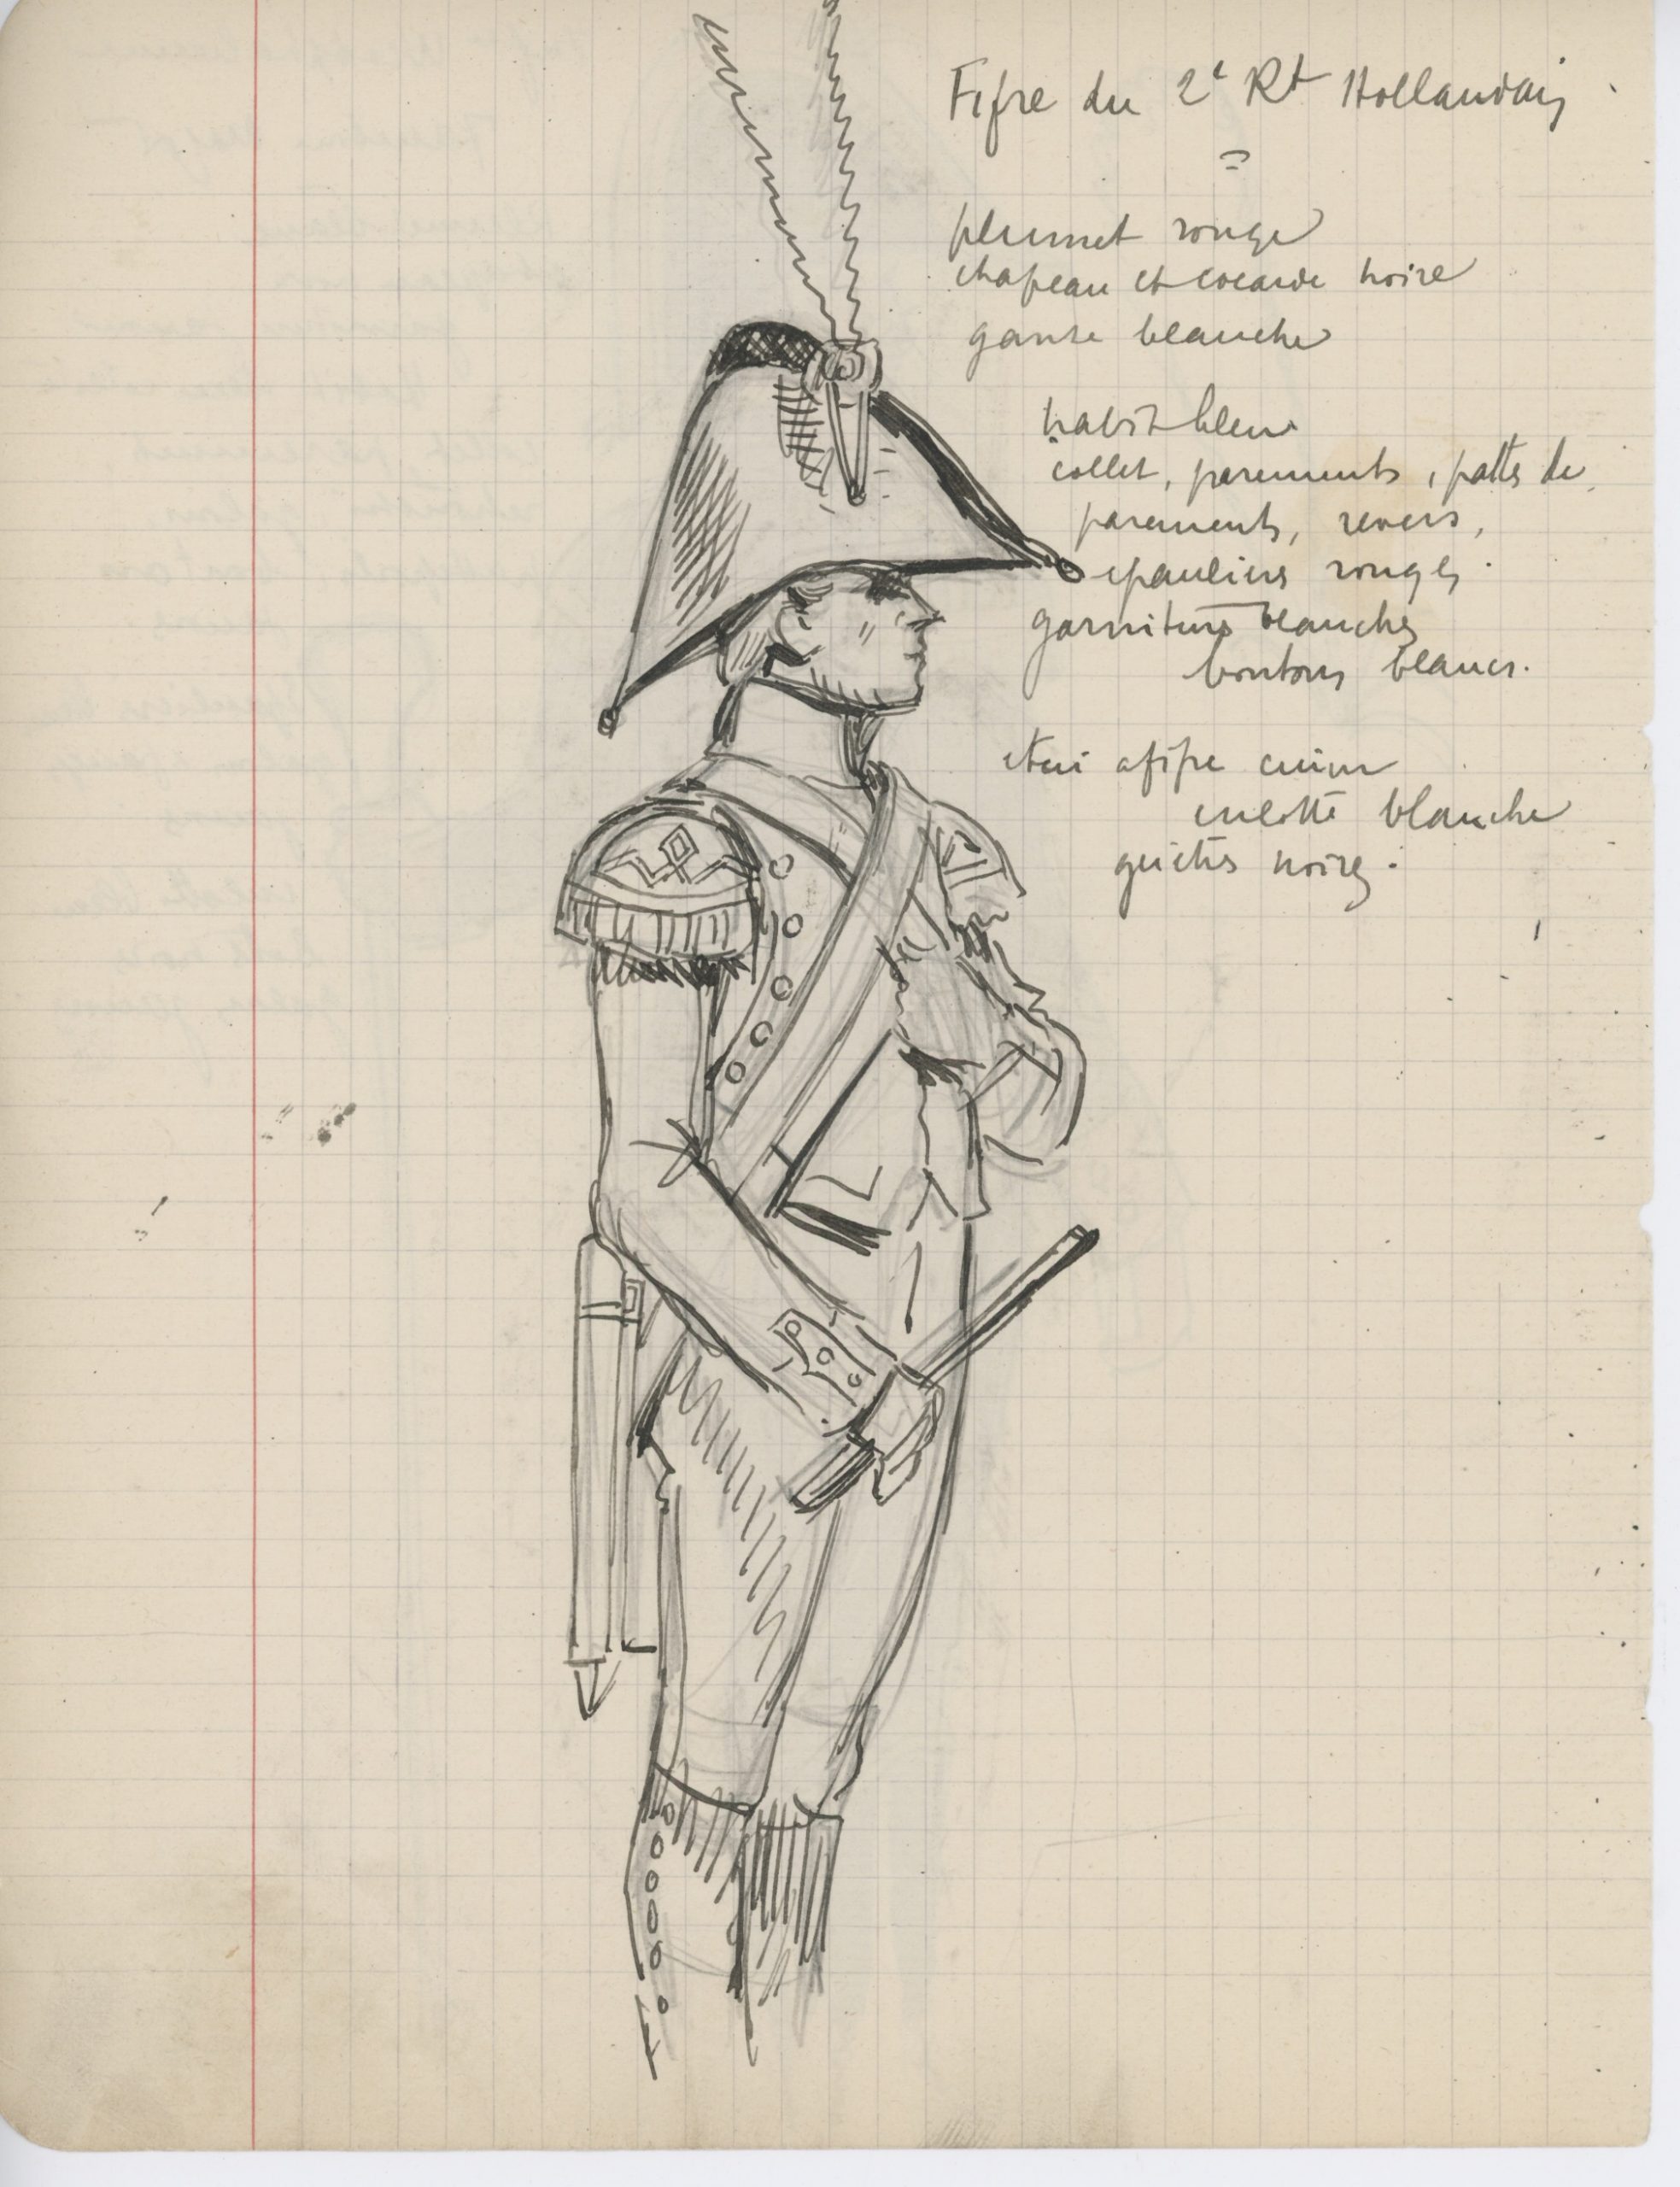 Fifre du 2e Rt Hollandais
plumet rouge
chapeau et cocarde noire
ganse blanche
habit bleu
collet, parements, pattes de
parements, revers,
epauliers rouges
garnitures blanches
boutons blancs.
etui a fifre cuivre
culotte blanche
guêtres noires.